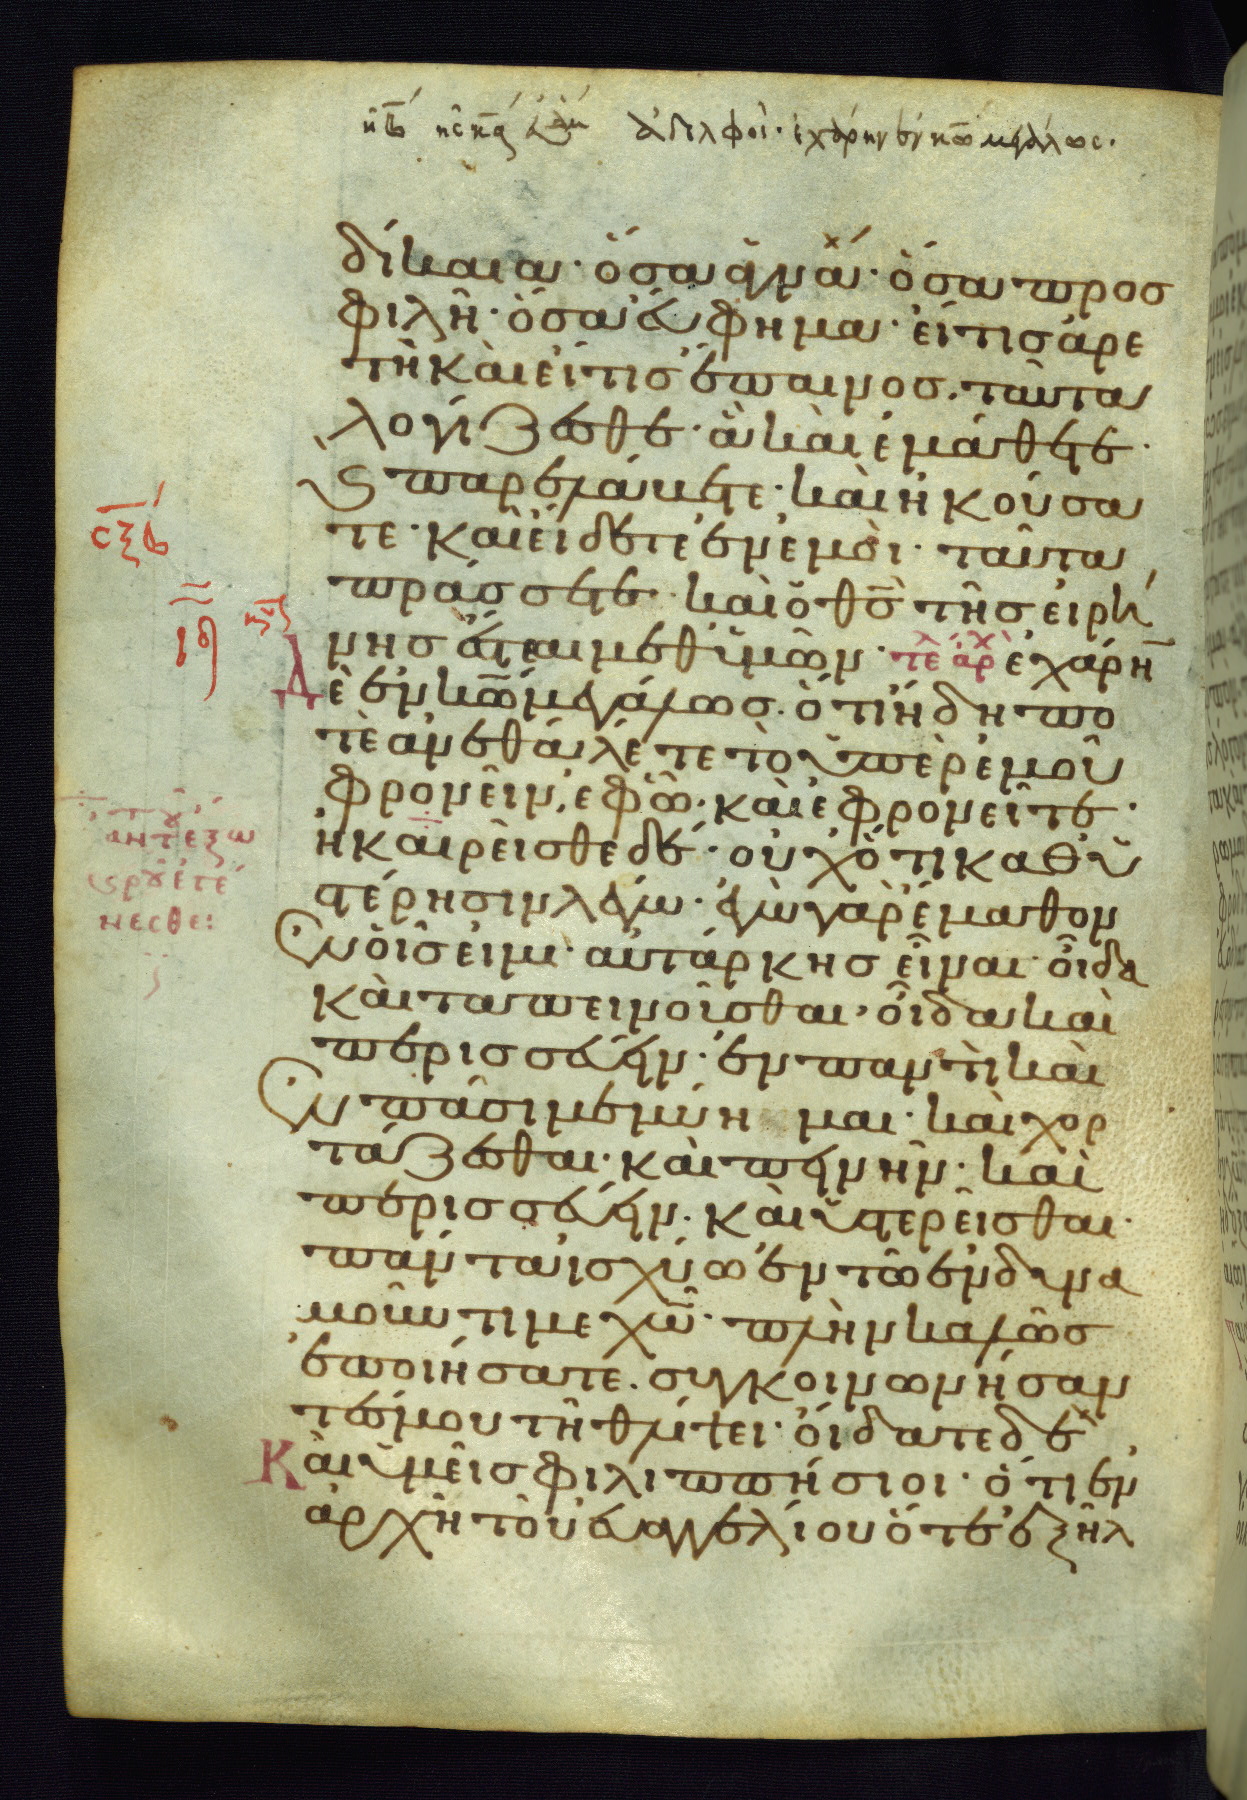 ἀδελφοί· ἐχάρην ἐν κω μεγάλως.
δίκαια· ὅσα ἁγνά· ὅσα προσ
φιλῆ· ὅσα εὔφημα· εἴ τισ ἀρε
τὴ καὶ εἴ τισ ἔπαινοσ. ταῦτα
λογίζεσθε· ἃ καὶ ἐμάθετε·
καὶ παρελάβετε· καὶ ἠκούσα
τε· καὶ εἴδετε ἐν ἐμοί· ταῦτα
πράσσετε· καὶ ὁ θσ τῆσ εἰρή
νησ ἔσται μεθ' ὑμῶν· τε αρχ ἐχάρην
Δὲ ἐν κω μεγάλωσ. ὅτι ἤδη πο
τὲ ἀνεθάλετε τὸ ὑπὲρ ἐμοῦ
φρονεῖν, ἐφ' ᾧ· καὶ ἐφρονεῖτε·
ἠκαιρεῖσθε δέ· οὐχ ὅτι καθ' ὑ
στέρησιν λέγω· ἐγὼ γὰρ ἔμαθον
ἐν οἷσ εἰμι· αὐτάρκησ εἶναι· οἶδα
καὶ ταπεινοῦσθαι· οἶδα καὶ
περισσεύειν· ἐν παντὶ καὶ
ἐν πᾶσι μεμύημαι· καὶ χορ
τάζεσθαι· καὶ πεινῆν· καὶ
περισσεύειν· καὶ ὑστερεῖσθαι·
πάντα ἰσχύω ἐν τῶ ἐνδυνα
μοῦντί με χω· πλὴν καλῶσ
ἐποιήσατε. συγκοινωνήσαν
τέσ μου τῆ θλίψει· οἴδατε δὲ
Καὶ ὑμεῖσ φιλιππήσιοι· ὅτι ἐν
ἀρχῆ τοῦ εὐαγγελίου ὅτε ἐξῆλ
σξβ
ιθ